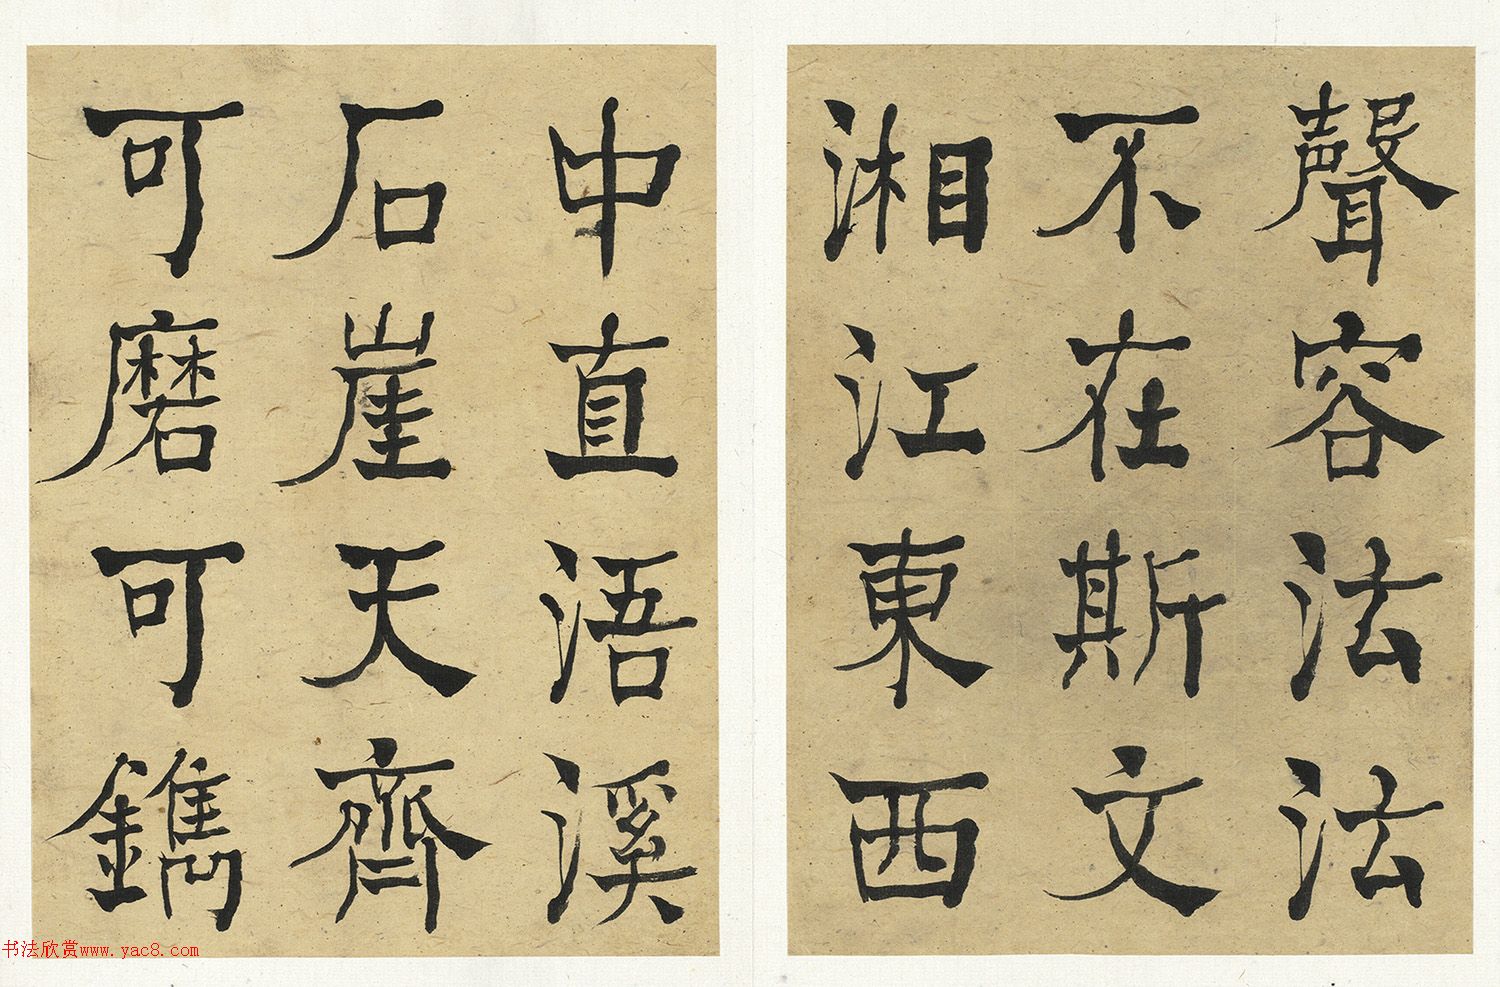 聲容法法
不在斯文
湘江東西
中直浯溪
石崖天齊
可磨可鐫
书法欣赏www.yac8.com